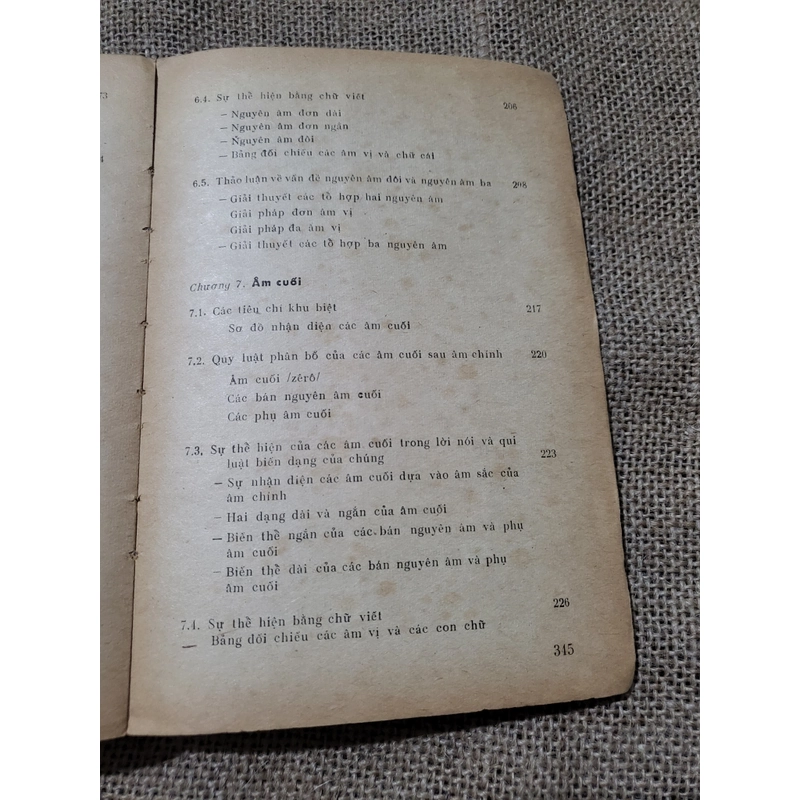 73
4
6.4. Sự thể hiện bằng chữ viết 206
— Nguyên âm đơn dài
— Nguyên âm đơn ngắn
— Nguyên âm đôi
— Bảng đối chiếu các âm vị và chữ cái
6.5. Thảo luận về vấn đề nguyên âm đôi và nguyên âm ba 208
— Giải thuyết các tổ hợp hai nguyên âm
Giải pháp đơn âm vị
Giải pháp đa âm vị
— Giải thuyết các tổ hợp ba nguyên âm
Chương 7. Âm cuối
7.1. Các tiêu chí khu biệt 217
Sơ đồ nhận diện các âm cuối
7.2. Quy luật phân bố của các âm cuối sau âm chính 220
Âm cuối /zêrô/
Các bán nguyên âm cuối
Các phụ âm cuối
7.3. Sự thể hiện của các âm cuối trong lời nói và qui
luật biến dạng của chúng 223
— Sự nhận diện các âm cuối dựa vào âm sắc của
âm chính
— Hai dạng dài và ngắn của âm cuối
— Biến thể ngắn của các bán nguyên âm và phụ
âm cuối
— Biến thể dài của các bán nguyên âm và phụ
âm cuối
7.4. Sự thể hiện bằng chữ viết 226
— Bảng đối chiếu các âm vị và các con chữ
345